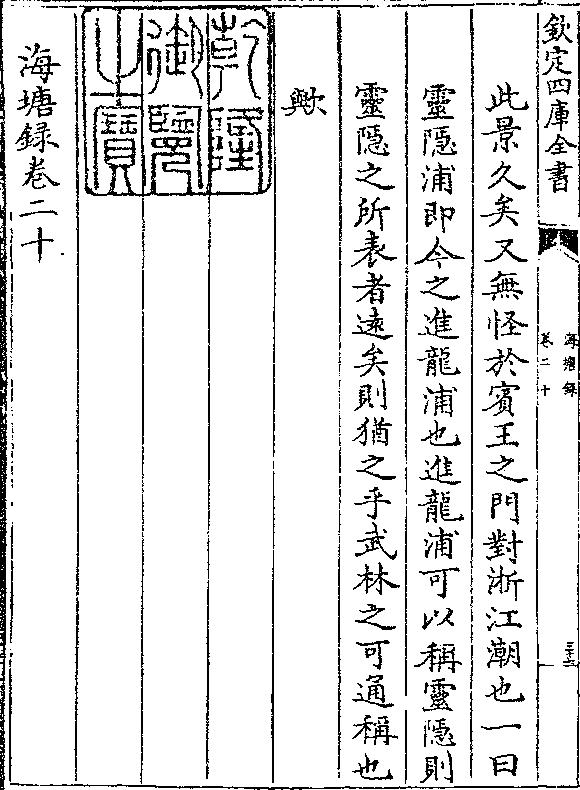 欽定四庫全書
海塘録
卷二十
三十二
此景久矣又無怪於賓王之門對浙江潮也一曰
靈隱浦即今之進龍浦也進龍浦可以稱靈隱則
靈隱之所表者遠矣則猶之乎武林之可通稱也
歟
乾隆
御覽
之寶
海塘録卷二十